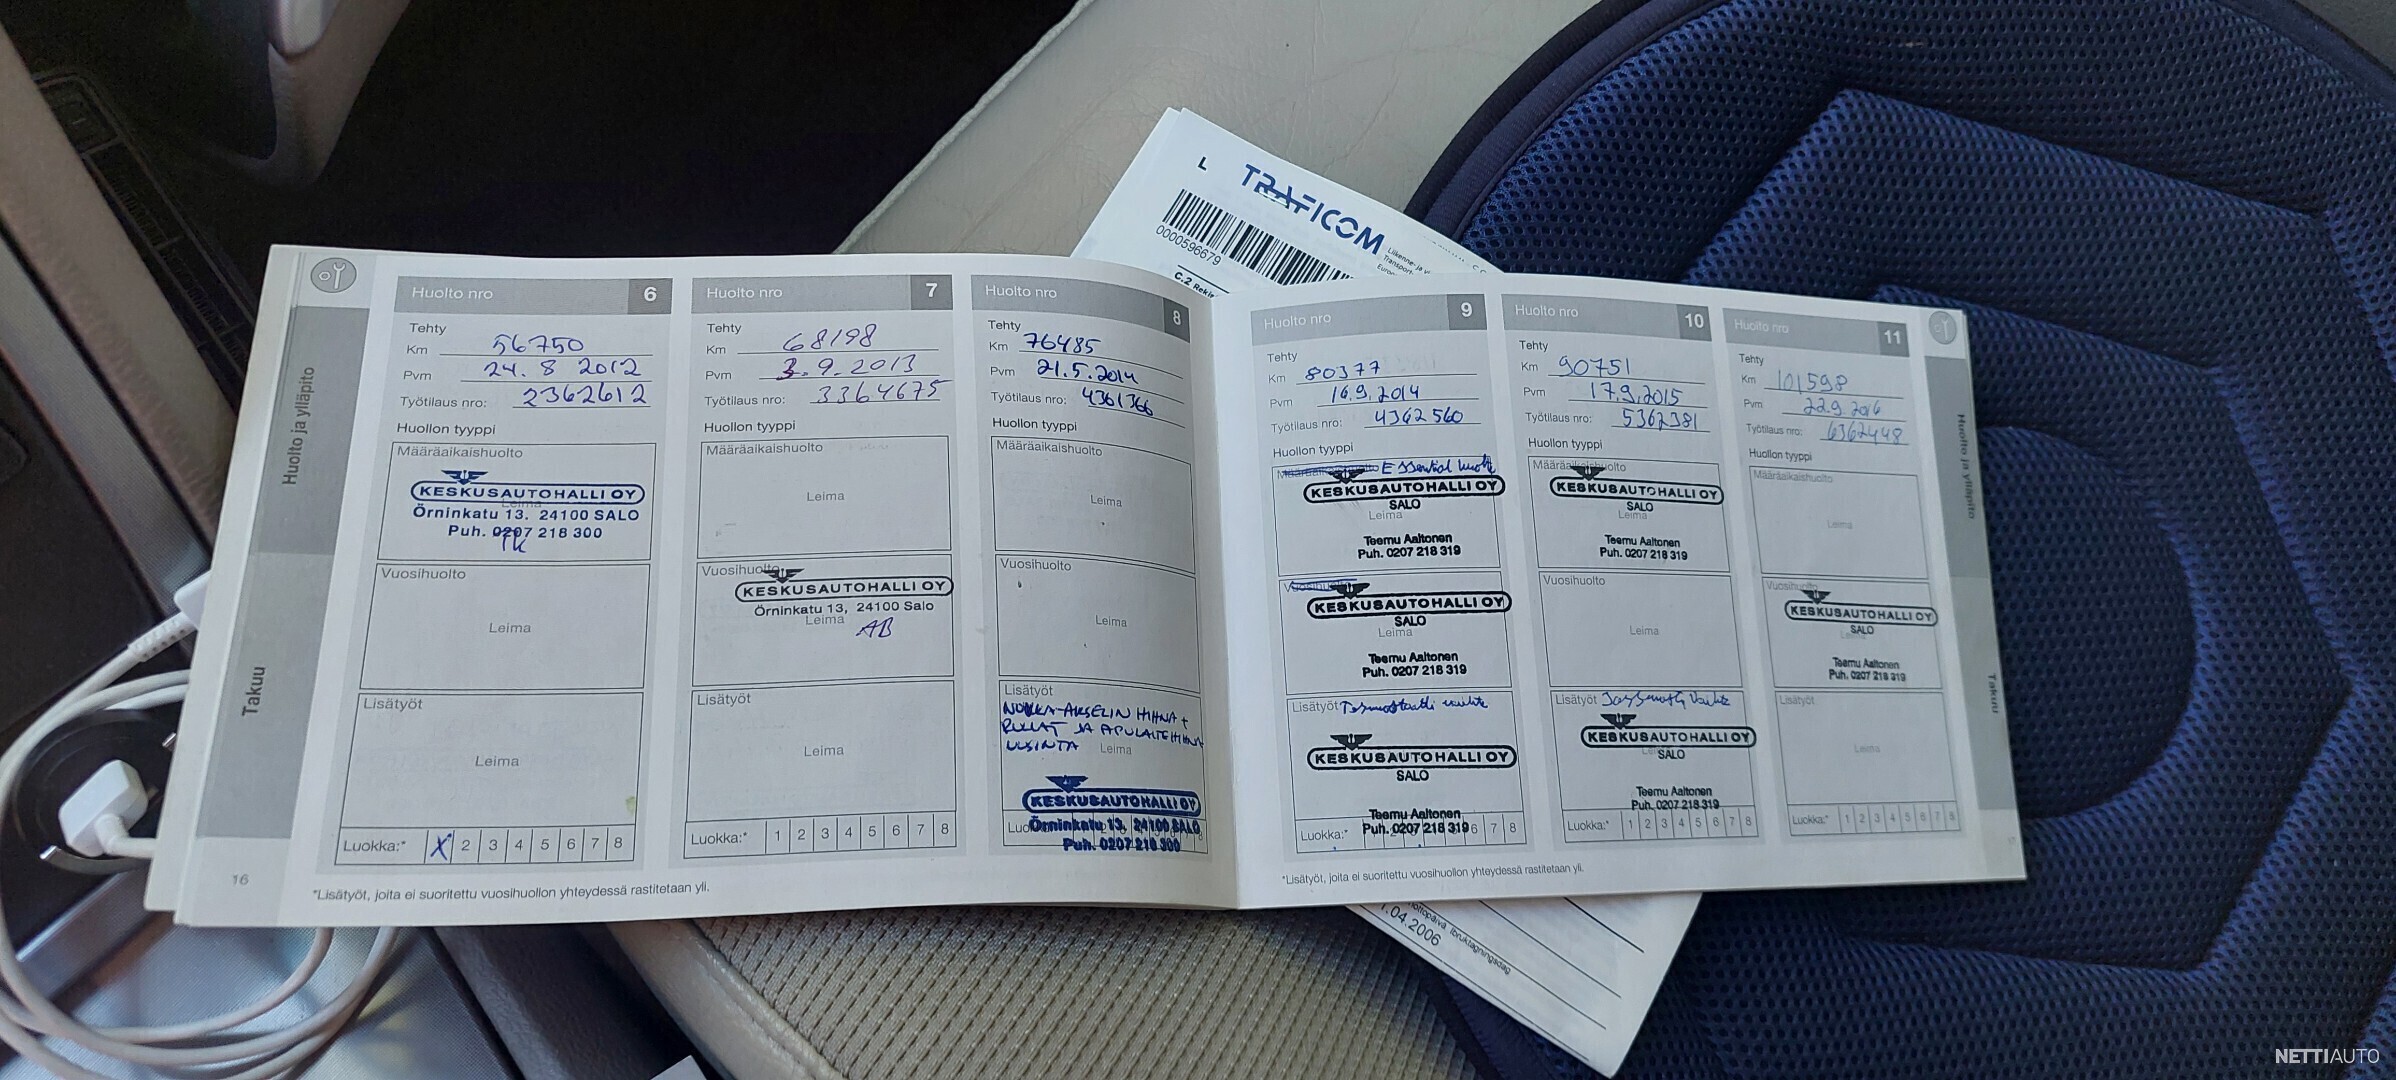 L TRAFICOM
0000596679
Huolto ja ylläpito
Takuu
Huolto nro 6
Tehty
Km 56750
Pvm 24.8 2012
Työtilaus nro: 2362612
Huollon tyyppi
Määräaikaishuolto
KESKUSAUTOHALLI OY
Leima
Örninkatu 13, 24100 SALO
Puh. 0207 218 300
TK
Vuosihuolto
Leima
Lisätyöt
Leima
Luokka:* X 2 3 4 5 6 7 8
Huolto nro 7
Tehty
Km 68198
Pvm 3.9.2013
Työtilaus nro: 3364675
Huollon tyyppi
Määräaikaishuolto
Leima
Vuosihuolto
KESKUSAUTOHALLI OY
Örninkatu 13, 24100 Salo
Leima
AB
Lisätyöt
Leima
Luokka:* 1 2 3 4 5 6 7 8
Huolto nro 8
Tehty
Km 76485
Pvm 21.5.2014
Työtilaus nro: 4361366
Huollon tyyppi
Määräaikaishuolto
Leima
Vuosihuolto
Leima
Lisätyöt
NOKKA-AKSELIN HIHNA +
RULLAT JA APULAITEHIHNA
UUSINTA Leima
KESKUSAUTOHALLI OY
Örninkatu 13, 24100 SALO
Puh. 0207 218 300
16
*Lisätyöt, joita ei suoritettu vuosihuollon yhteydessä rastitetaan yli.
Huolto nro 9
Tehty
Km 80377
Pvm 16.9.2014
Työtilaus nro: 4362560
Huollon tyyppi
Määräaikaishuolto Essential huolto
KESKUSAUTOHALLI OY
SALO
Leima
Teemu Aaltonen
Puh. 0207 218 319
Vuosihuolto
KESKUSAUTOHALLI OY
SALO
Leima
Teemu Aaltonen
Puh. 0207 218 319
Lisätyöt Termostaatti vaihto
KESKUSAUTOHALLI OY
SALO
Teemu Aaltonen
Luokka:* Puh. 0207 218 319 6 7 8
Huolto nro 10
Tehty
Km 90751
Pvm 17.9.2015
Työtilaus nro: 5362381
Huollon tyyppi
Määräaikaishuolto
KESKUSAUTOHALLI OY
SALO
Leima
Teemu Aaltonen
Puh. 0207 218 319
Vuosihuolto
Leima
Lisätyöt
KESKUSAUTOHALLI OY
SALO
Teemu Aaltonen
Puh. 0207 218 319
Luokka:* 1 2 3 4 5 6 7 8
Huolto nro 11
Tehty
Km 101598
Pvm 22.9.2016
Työtilaus nro: 6362448
Huollon tyyppi
Määräaikaishuolto
Leima
Vuosihuolto
KESKUSAUTOHALLI OY
SALO
Teemu Aaltonen
Puh. 0207 218 319
Lisätyöt
Leima
Luokka:* 1 2 3 4 5 6 7 8
*Lisätyöt, joita ei suoritettu vuosihuollon yhteydessä rastitetaan yli.
Huolto ja ylläpito
Takuu
Ibruktagningsdag
.04.2006
NETTIAUTO